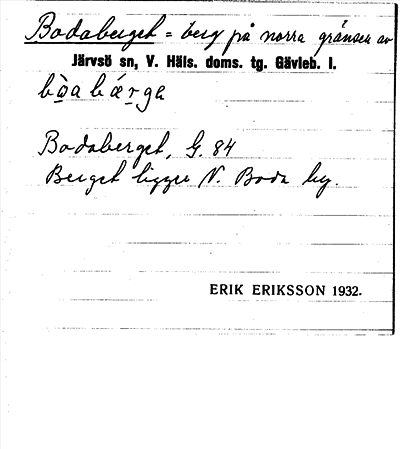 Bodaberget = berg på norra gränsen av
Järvsö sn, V. Häls. doms. tg. Gävleb. l.
Bodaberget, G. 84
Berget ligger N. Boda by.
ERIK ERIKSSON 1932.